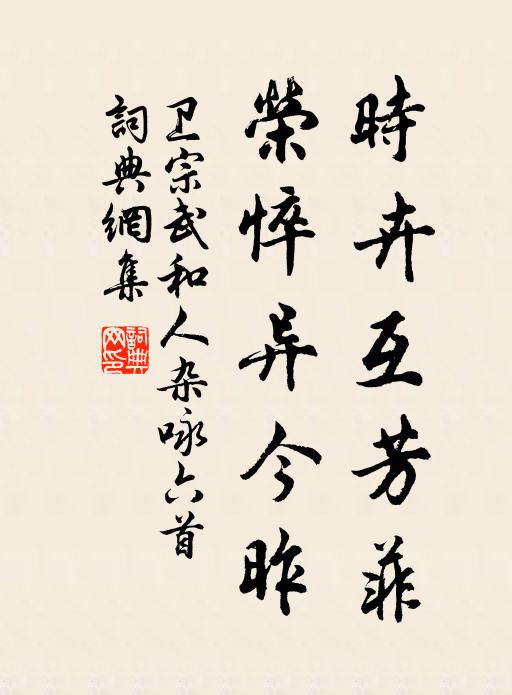 時卉互芳菲
榮悴异今昨
卫宗武和人杂咏六首
詞典網集
詞典网印